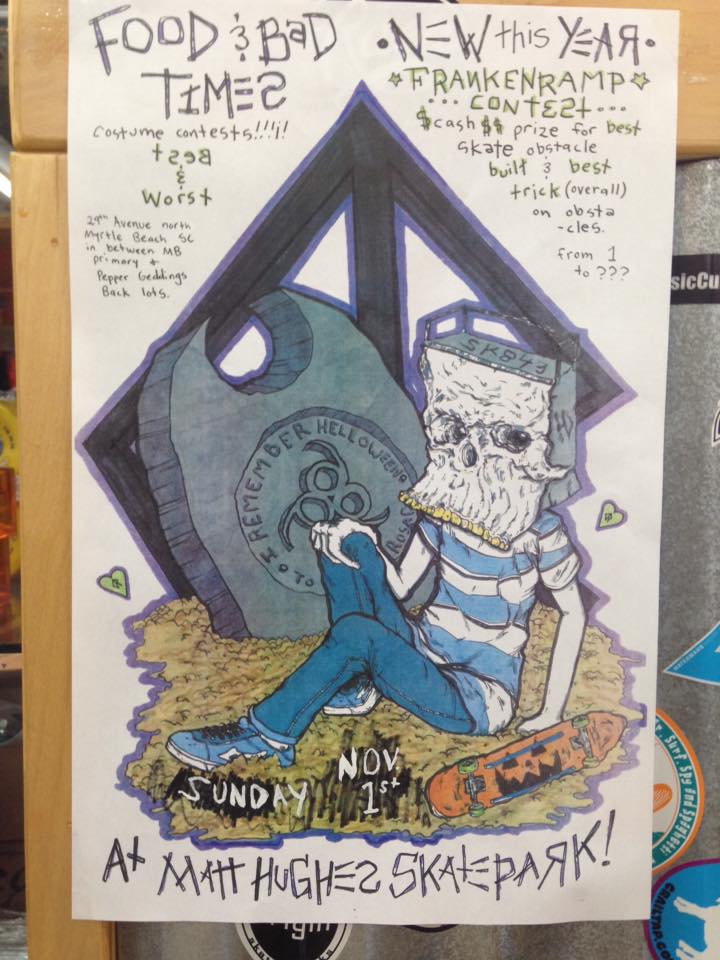 FOOD & BAD
TIMES
costume contests!!!¡!
BEST
&
Worst
29th Avenue north
Myrtle Beach SC
in between MB
primary +
Pepper Geddings
Back lots.
• NEW this YEAR •
FRANKENRAMP
... CONTEST ...
$cash $$ prize for best
skate obstacle
built & best
trick (overall)
on obsta
-cles.
from 1
to ???
SK843
REMEMBER HELLOWEEN
SUNDAY NOV.
1st
At MATT HUGHES SKATEPARK!
sicCu
r. Surf, Spy and Spaghetti!
CRAILTAP.CO